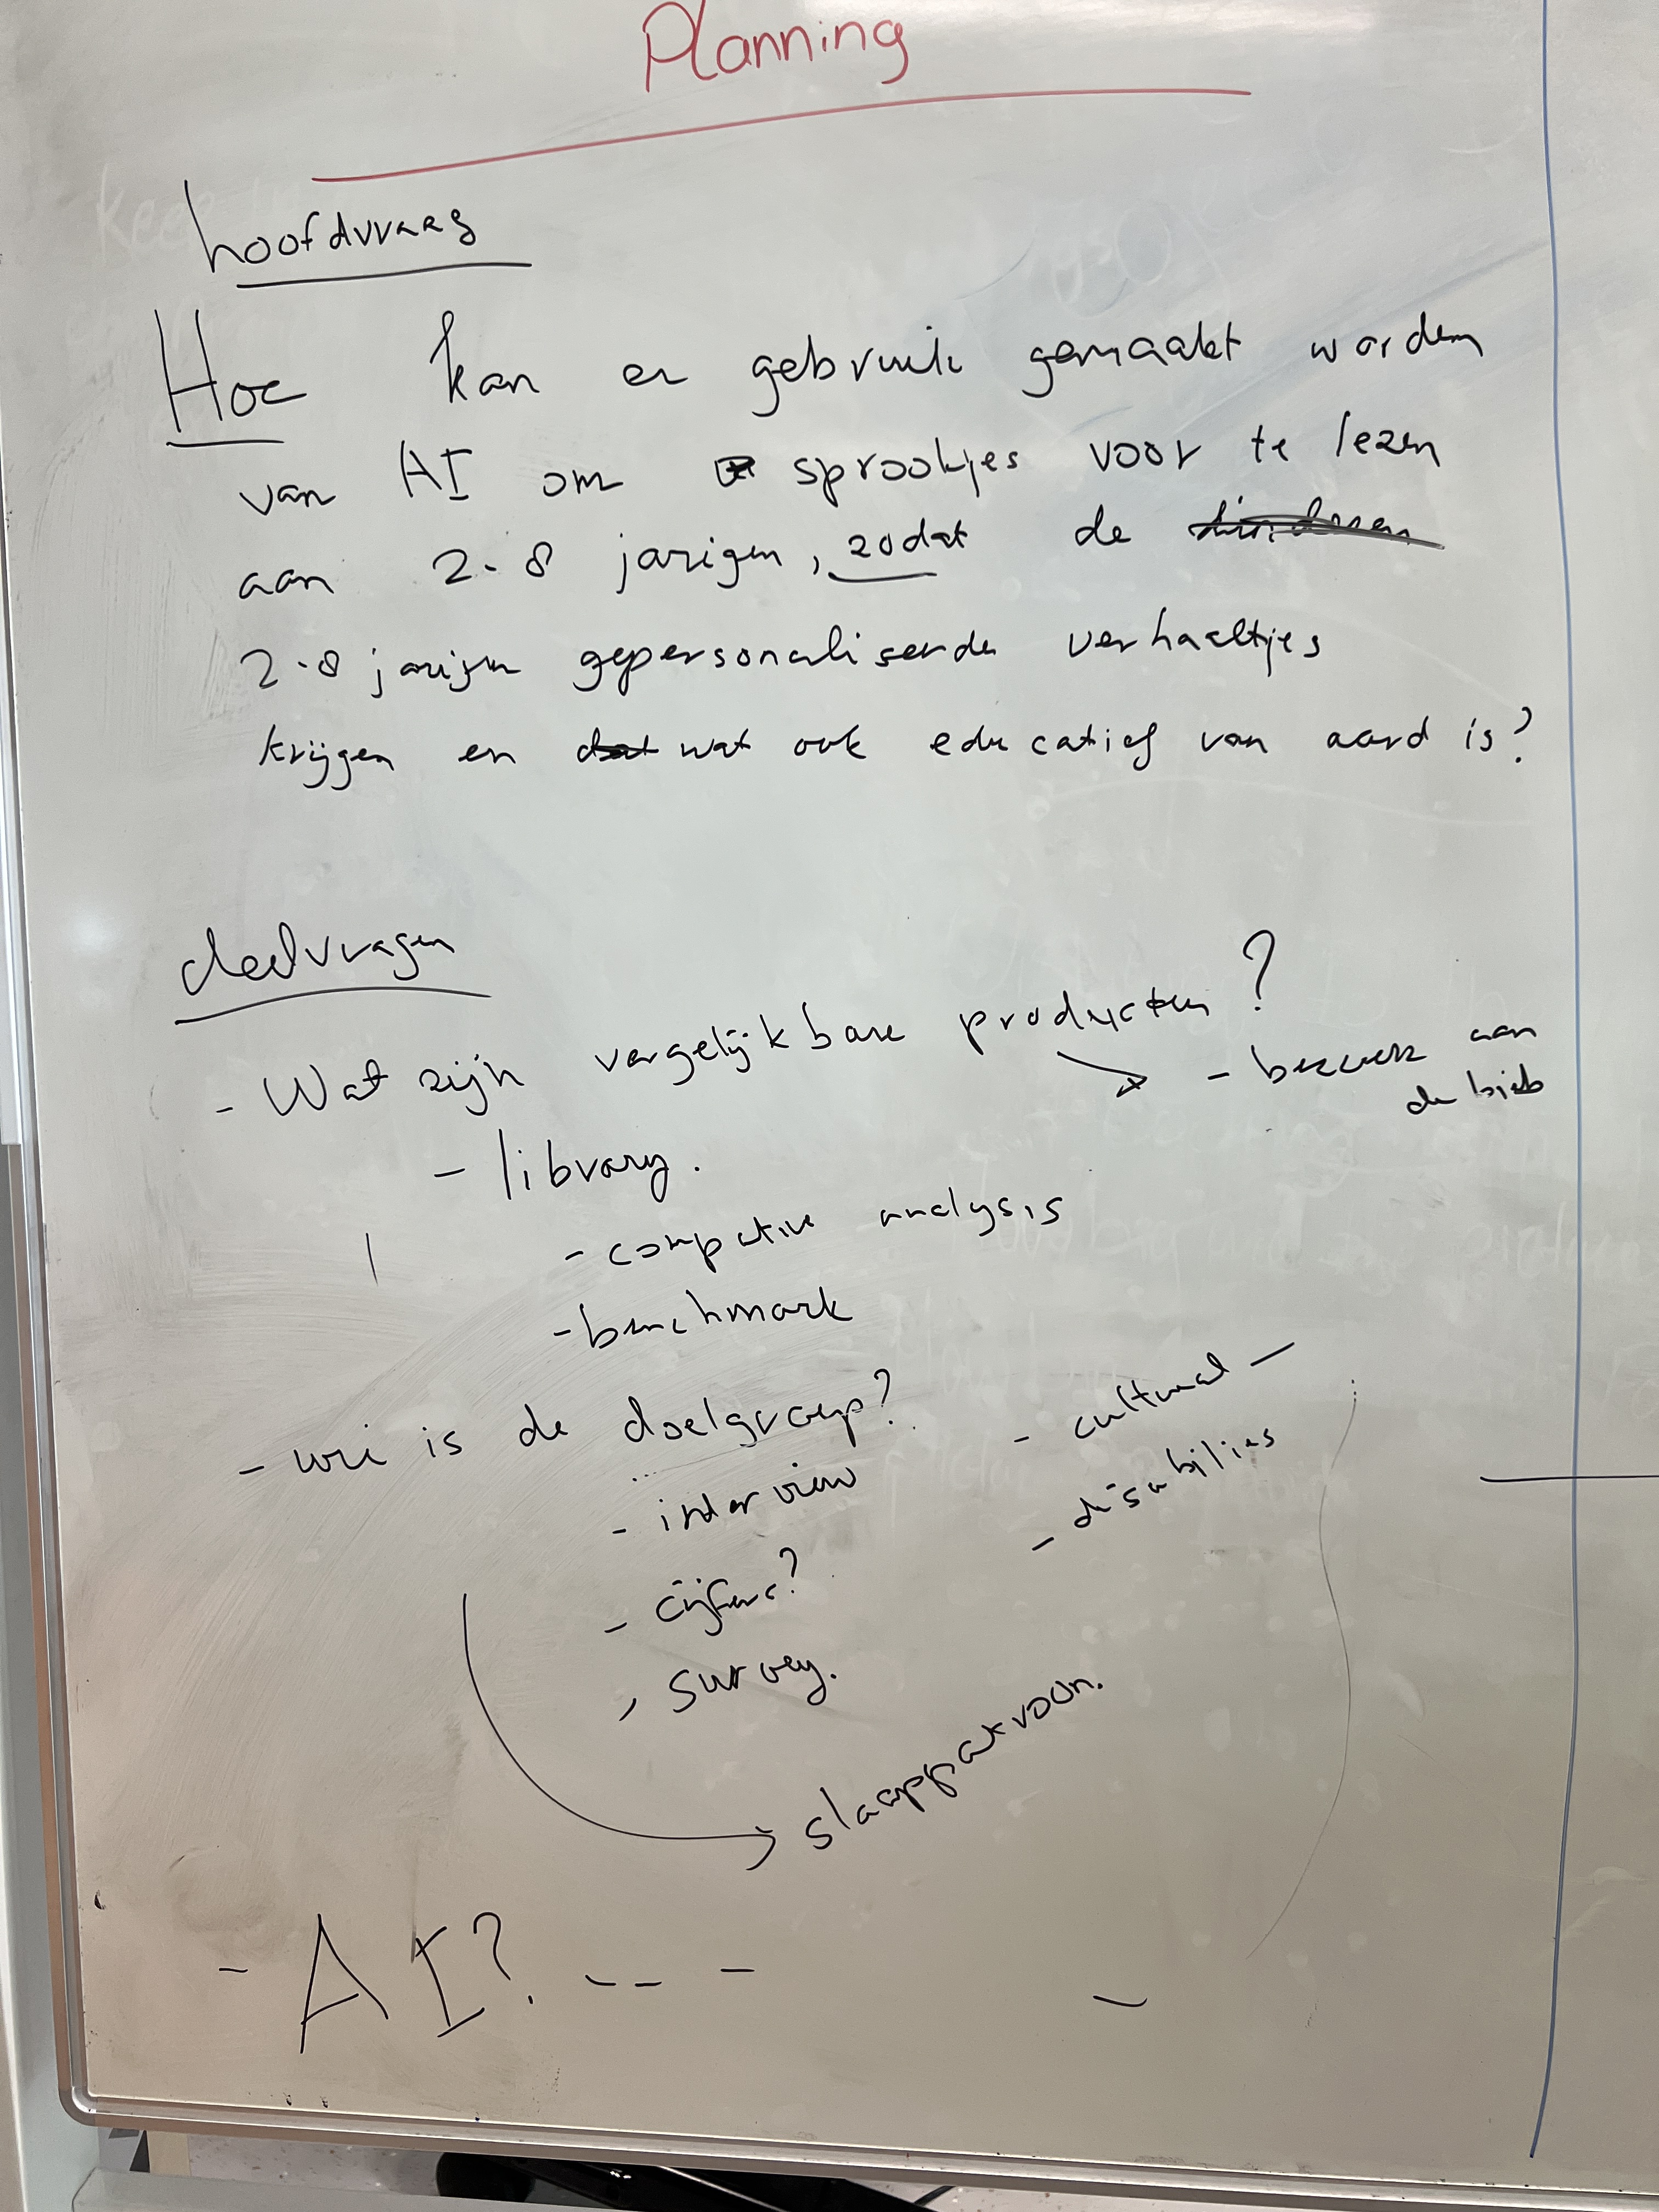 Planning
hoofdvraag
Hoe kan er gebruik gemaakt worden
van AI om sprookjes voor te lezen
aan 2-8 jarigen, zodat de kinderen
2-8 jarigen gepersonaliseerde verhaaltjes
krijgen en dat wat ook educatief van aard is?
deelvragen
- Wat zijn vergelijkbare producten?
- bezoek aan
de bieb
- library.
- compative analysis
- benchmark
- wie is de doelgroep?
- interview
- cijfers?
- survey.
- cultureel -
- disabilies
slaappatroon.
- AI? -- -